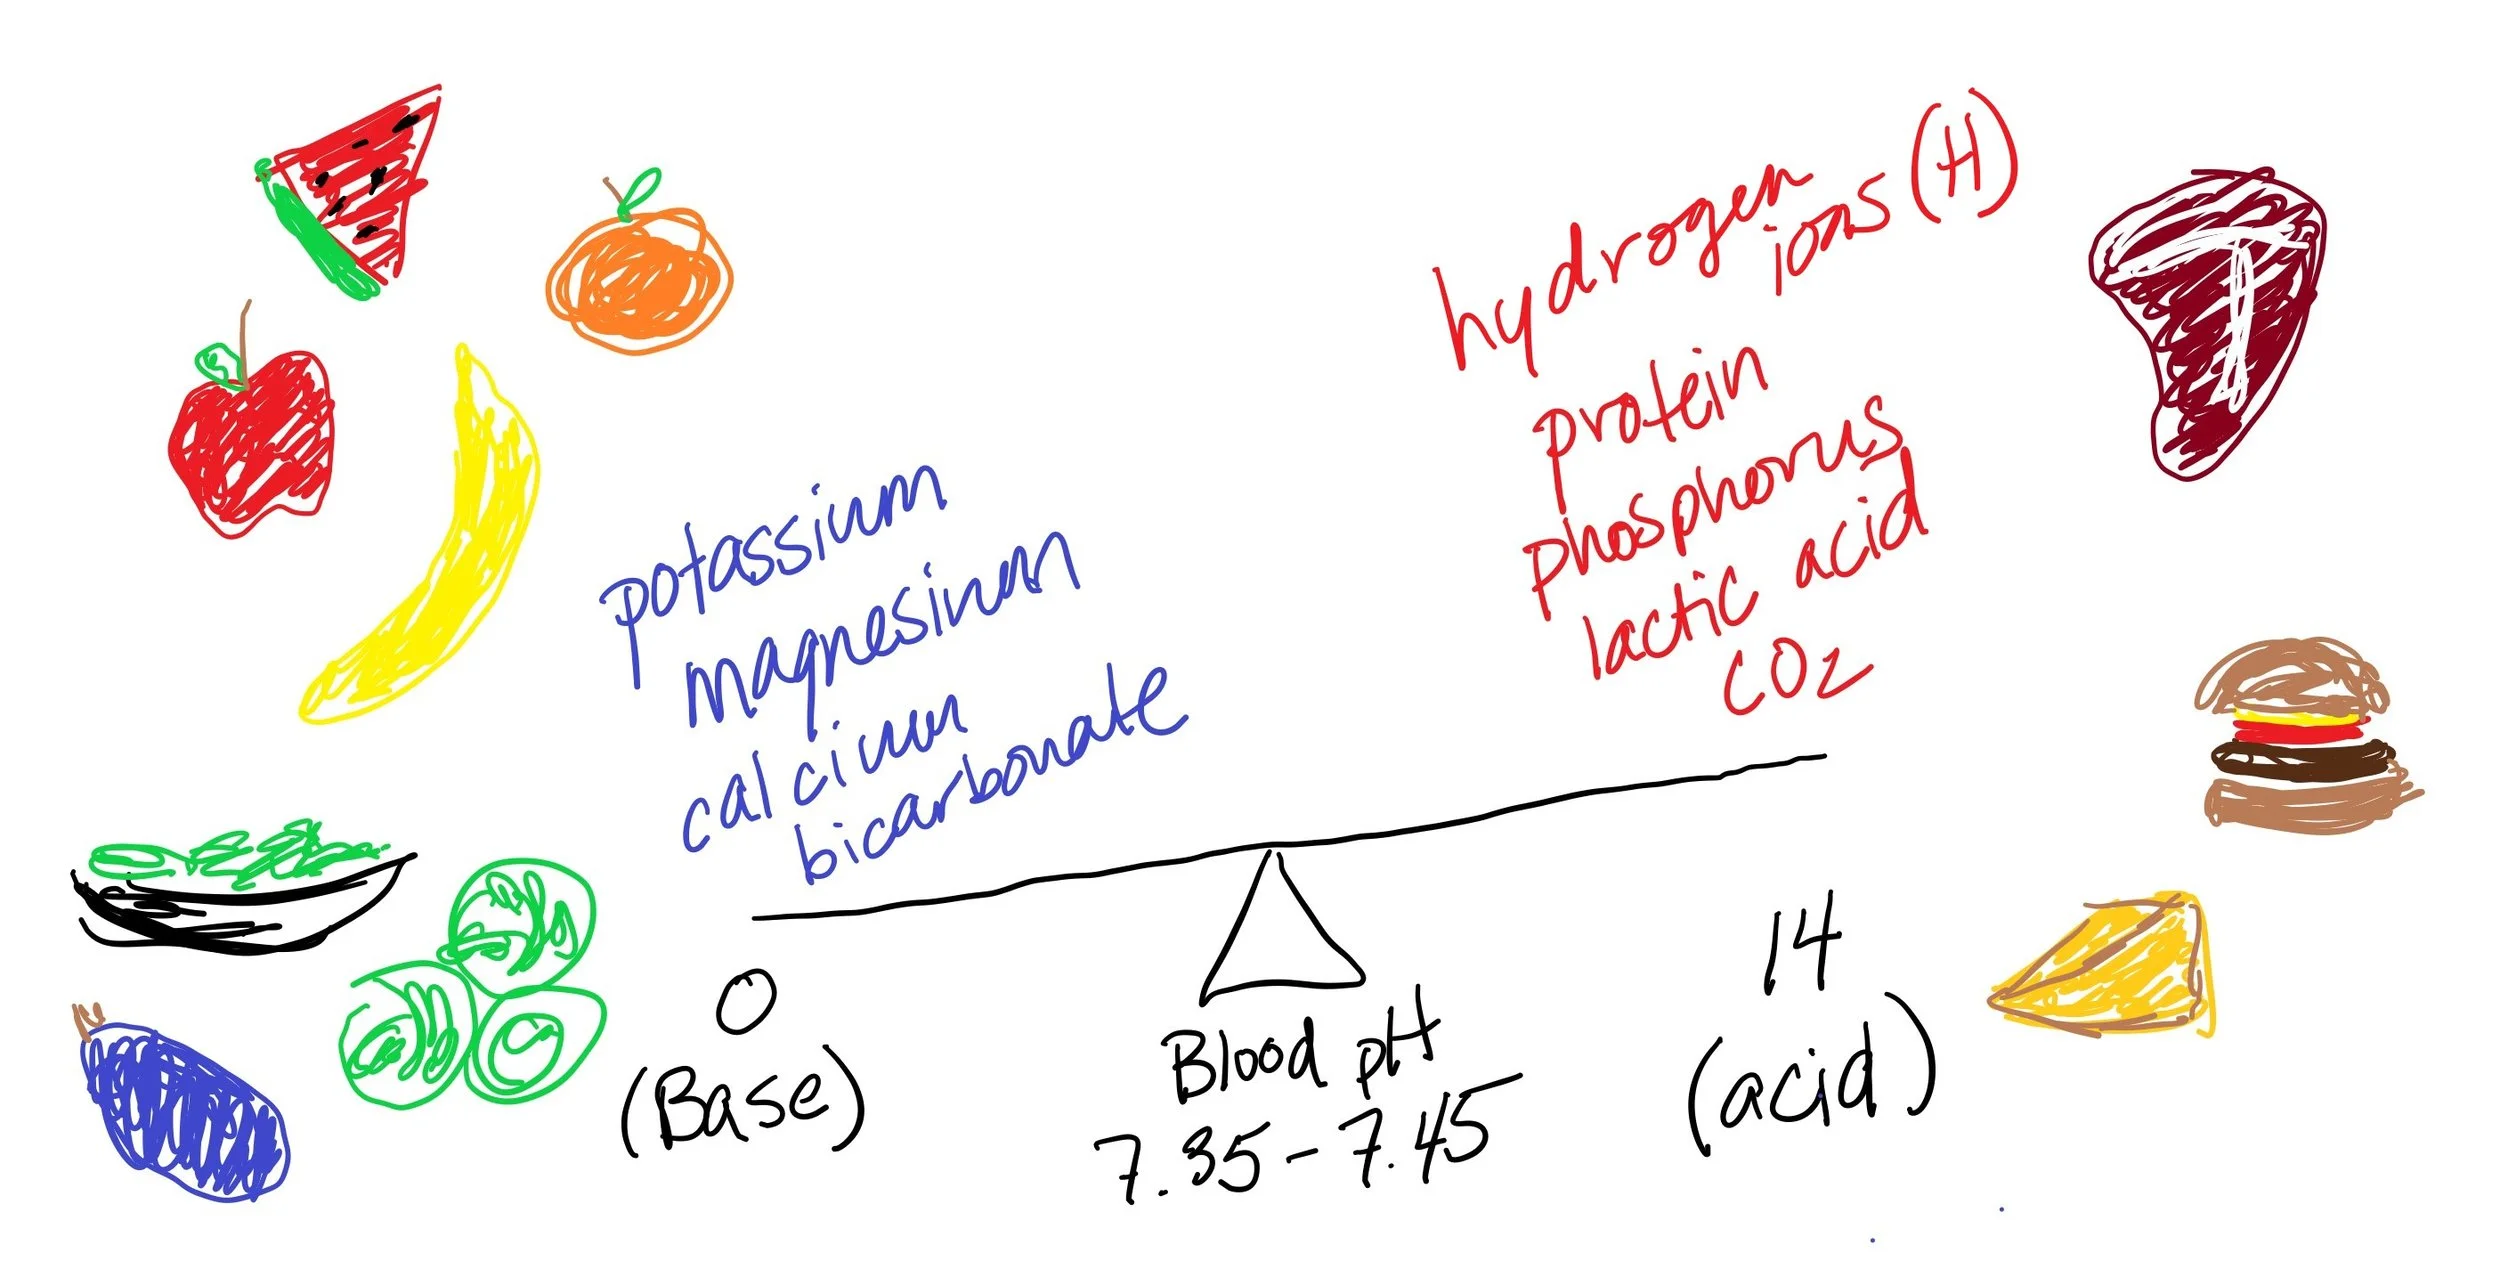 potassium
magnesium
calcium
bicarbonate
hydrogen
ions (H)
protein
phosphorus
lactic acid
CO2
0
(Base)
Blood pH
7.35 - 7.45
14
(acid)